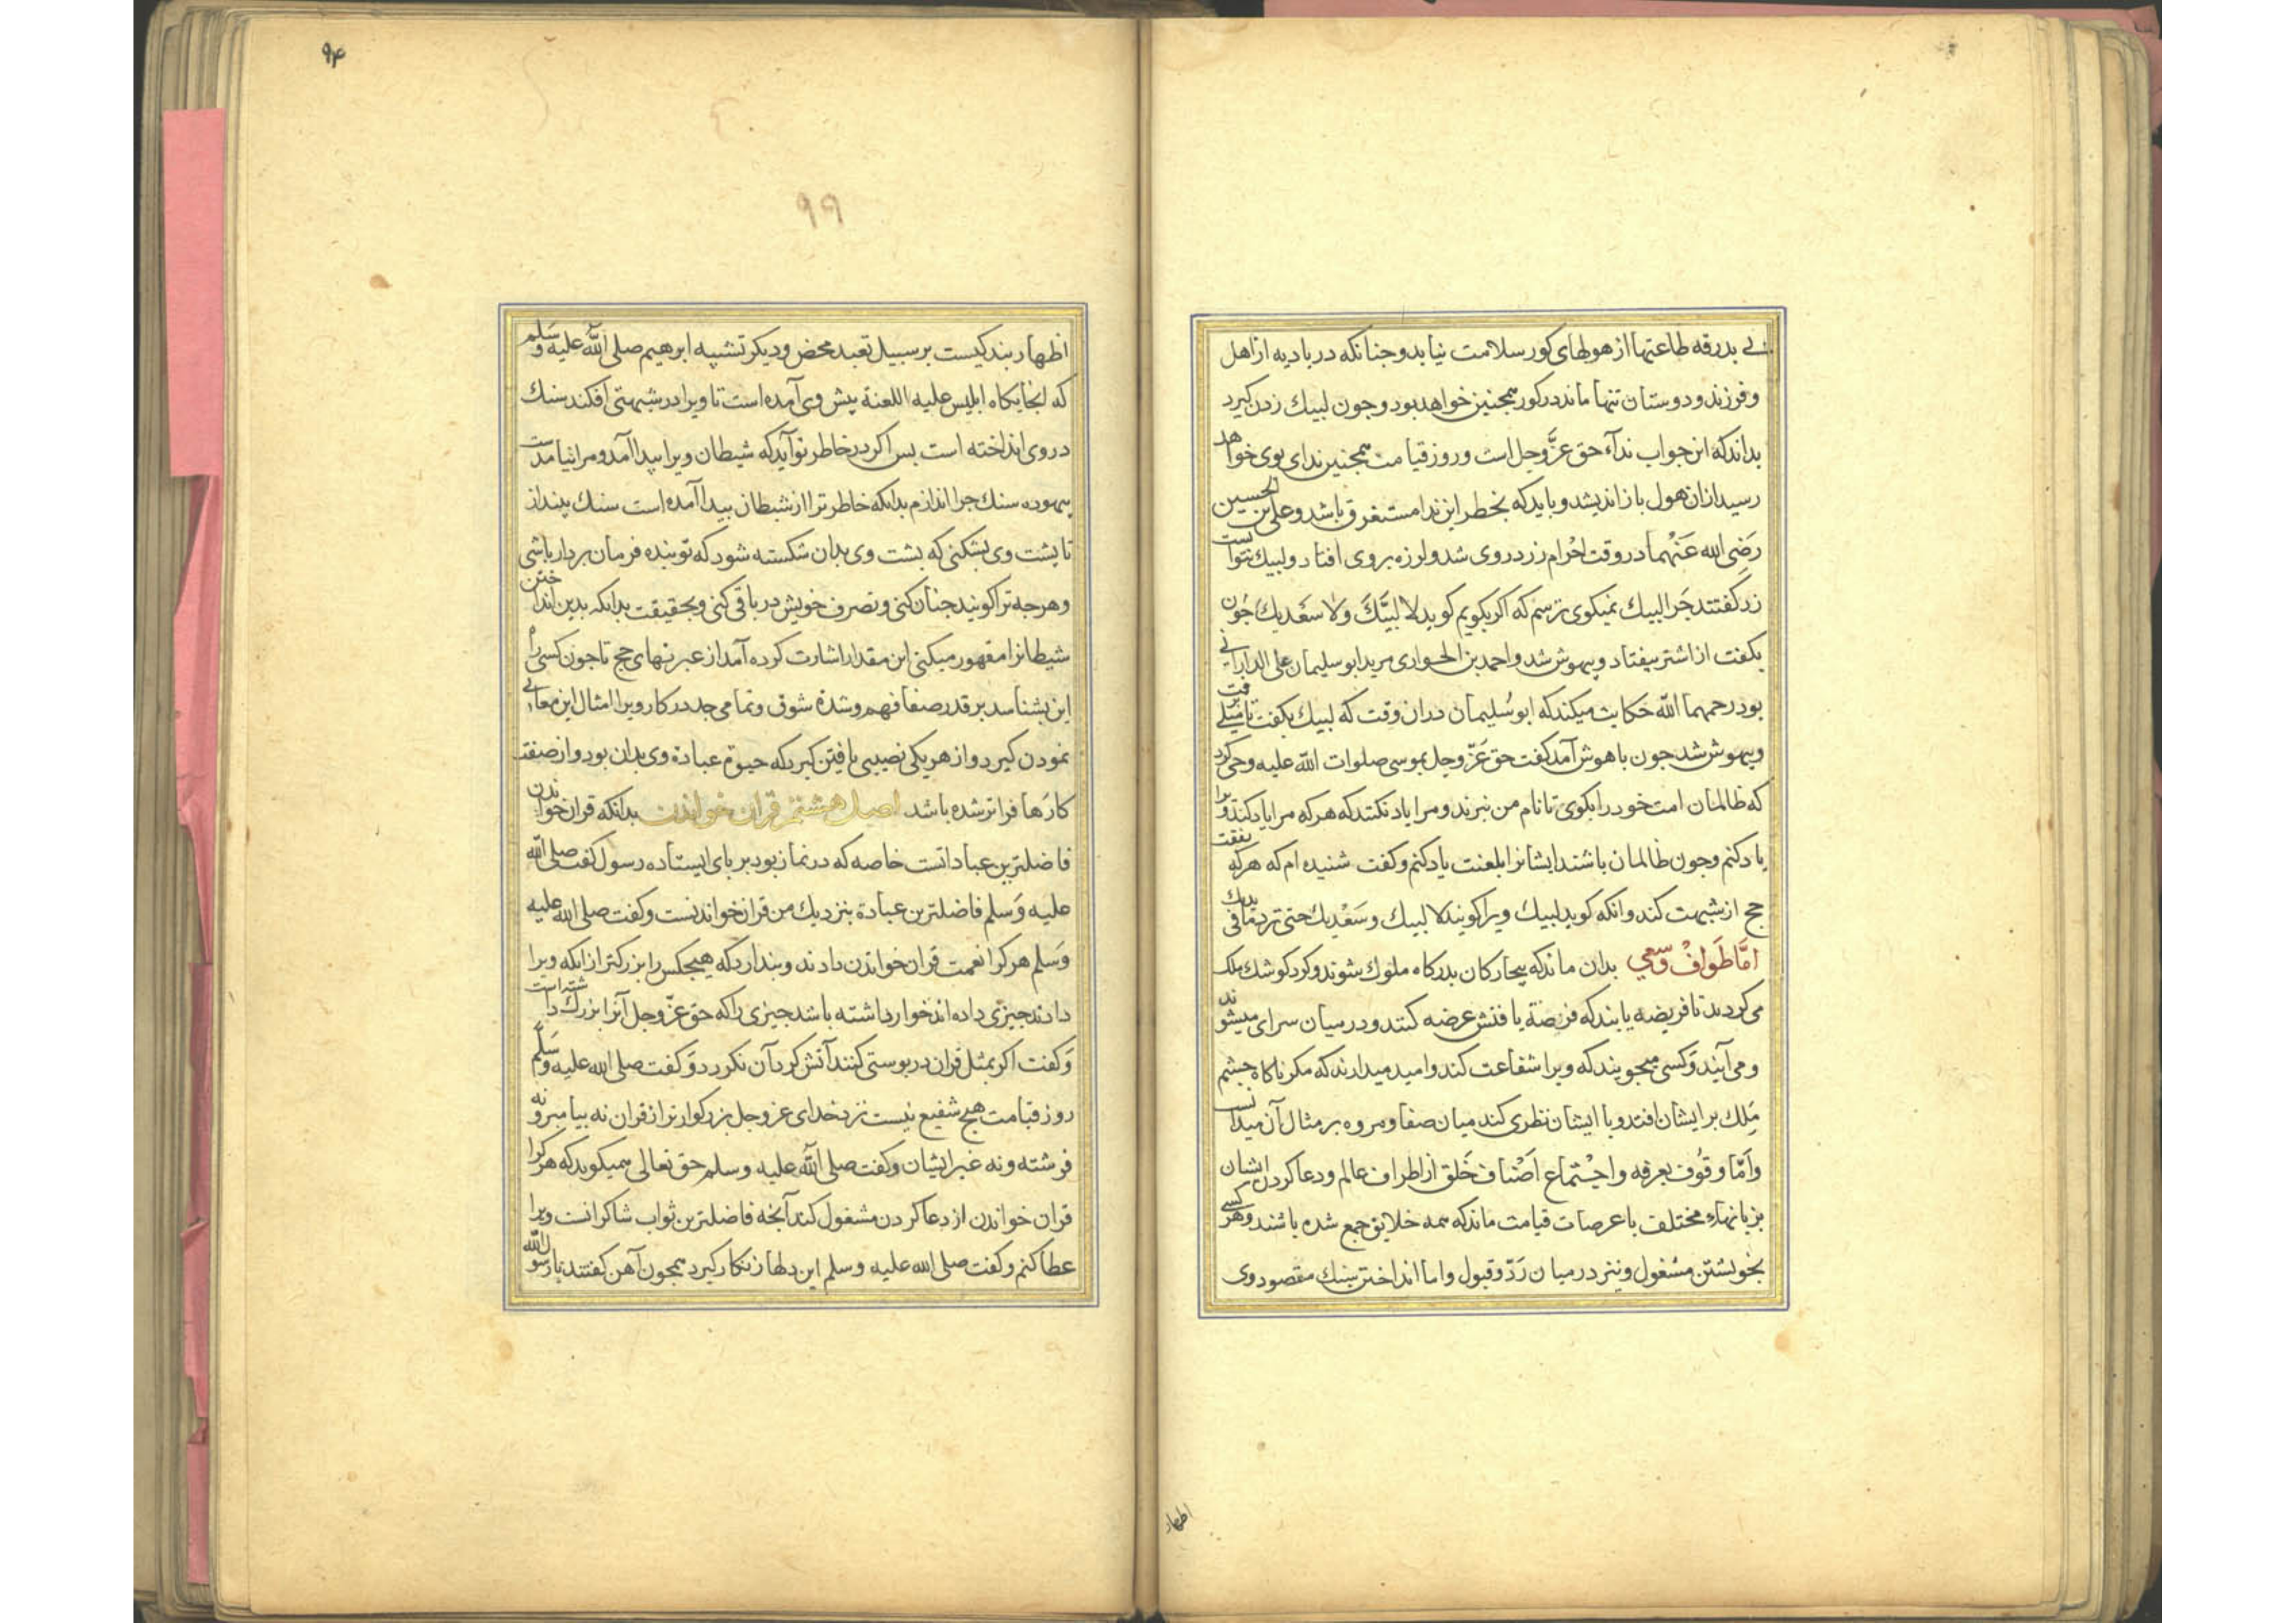 بی بدرقه طاعتها از هولهای کور سلامت نیابد وجنانکه در بادیه از اهل
وفرزند ودوستان تنها ماند در کور همجنین خواهد بود وجون لبیك زدن کیرد
بداند که این جواب ندآء حق عزَّ وجل است وروز قیامت همجنین ندای بوی خواهد
رسید ازان هول باز اندیشد وباید که بخطر این ندا مستغرق باشد وعلی بن الحسین
رَضِی الله عَنْهما در وقت احْرام زرد روی شد ولرزه بروی افتاد ولبیك نتوانست
زد کفتند جَرا لبیك نمیکوی ترسم که اکر بکویم کوید لا لبَّیْكَ ولا سعَدیك جُون
بکفت از اشتر بیفتاد وبیهوش شد واحمد بن الحواری مرید ابو سلیمان علی الدارانی
بود رحمهما اللّه حَکایت میکند که ابو سُلیمان دران وقت که لبیك بکفت تا میلی برفت
وبیهوش شد جون باهوش آمد کفت حق عَزّ وجل بموسی صلوات اللّه علیه وحی کرد
که ظالمان امت خود را بکوی تا نام من نبرند ومرا یاد نکنند که هرکه مرا یاد کند ویرا
یاد کنم وجون ظالمان باشند ایشانرا بلعنت یاد کنم وکفت شنیده ام که هرکه نفقت
حج از شبهت کند وانکه کوید لبیك ویرا کویند لا لبیك وسَعْدیك حتی ترد ما فی یدیك
امَّا طَوافْ وسعی بدان ماند که بیجارکان بدرکاه ملوك شوند وکرد کوشك ملك
می کردند تا فریضه یابند که فرصة یافتش عرضه کنند ودر میان سرای میشوند
ومی آیند وَکسی میجویند که ویرا شفاعت کند وامید میدارند که مکر ناکاه جشم
مَلِك بر ایشان افتد وبا ایشان نظری کند میان صفا ومروه بر مثال آن میدانست
وَامّا وقوُف بعرفه واجْتماع اَصْناف خَلق از اطراف عالم ودعا کردن ایشان
بزبانهاء مختلف با عرصات قیامت ماند که همه خلایق جمع شده باشند وهر کسی
بخویشتن مشغول ونیز در میان رَدّ وقبول واما انداختن سنك مقصود وی
اظهار
۹۴
۹۹
اظهار بندکیست بر سبیل تعبد محض ودیکر تشبیه ابرهیم صلی اللّه علیه وسَلم
که انجایکاه ابلیس علیه اللعنة پیش وی آمده است تا ویرا در شبهتی افکند سنك
در وی انداخته است بس اکر در خاطر تو آید که شیطان ویرا بیدا آمد ومرا نیامدست
بیهوده سنك جرا اندازم بدانکه خاطر ترا از شیطان بیدا آمده است سنك بینداز
تا پشت وی بشکنی که بشت وی بدان شکسته شود که تو بنده فرمان بردار باشی
وهرجه ترا کویند جنان کنی وتصرف خویش در باقی کنی وبحقیقت بدانکه بدین انداختن
شیطانرا مقهور میکنی این مقدار اشارت کرده آمد از عبرتهای حج تا جون کسی راه
این بشناسد بر قدر صفا فهم وشدة شوق وتمامی جد در کار ویرا امثال این معانی
نمودن کیرد واز هر یکی نصیبی یافتن کیرد که حیوة عبادة وی بدان بود واز صفت
کارها فراتر شده باشد اصل هشتم قران خواندن بدانکه قران خواندن
فاضلترین عباداتست خاصه که در نماز بود بر پای ایستاده رسول کفت صلی اللّه
علیه وَسلم فاضلترین عبادة بنزدیك من قران خواندنست وکفت صلی اللّه علیه
وَسَلم هر کرا نعمت قران خواندن دادند وبندارد که هیجکس را بزرکتر از انکه ویرا
دادند جیزی داده اند خوار داشته باشد جیزی را که حق عزّ وجل آنرا بزرك داشته است
وَکفت اکر بمثل قران در بوستی کنند آتش کرد آن نکردد وَکفت صلی الله علیه وسَلم
روز قیامت هیج شفیع نیست نزد خدای عز وجل بزرکوارتر از قران نه بیامبر ونه
فرشته ونه غیر ایشان وکفت صلی اللّه علیه وسلم حق تعالی همیکوید که هرکرا
قران خواندن از دعا کردن مشغول کند آنجه فاضلترین ثواب شاکرانست ویرا
عطا کنم وکفت صلی الله علیه وسلم این دلها زنکار کیرد همجون آهن کفتند یا رسول اللّه